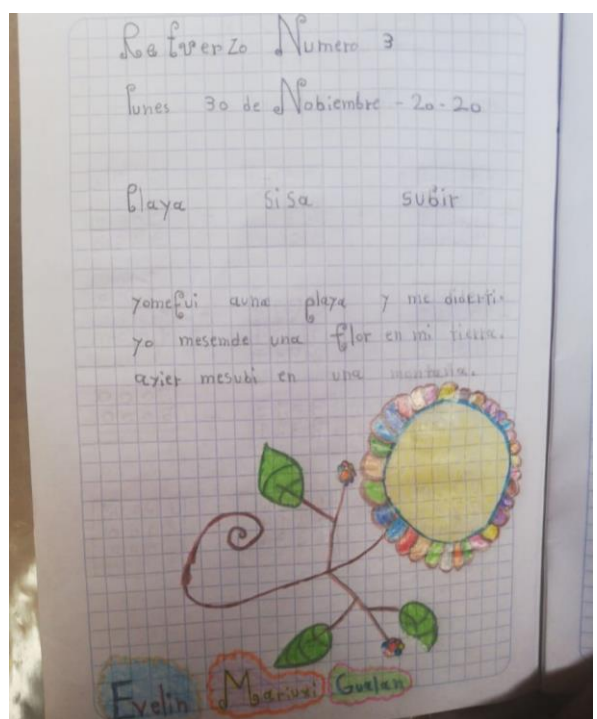 Refuerzo Numero 3
lunes 30 de Nobiembre - 20-20
Playa sisa subir
yomefui auna playa y me diderti.
yo mesemde una flor en mi tierra.
ayier mesubi en una montaña.
Evelin Mariuxi Gualan